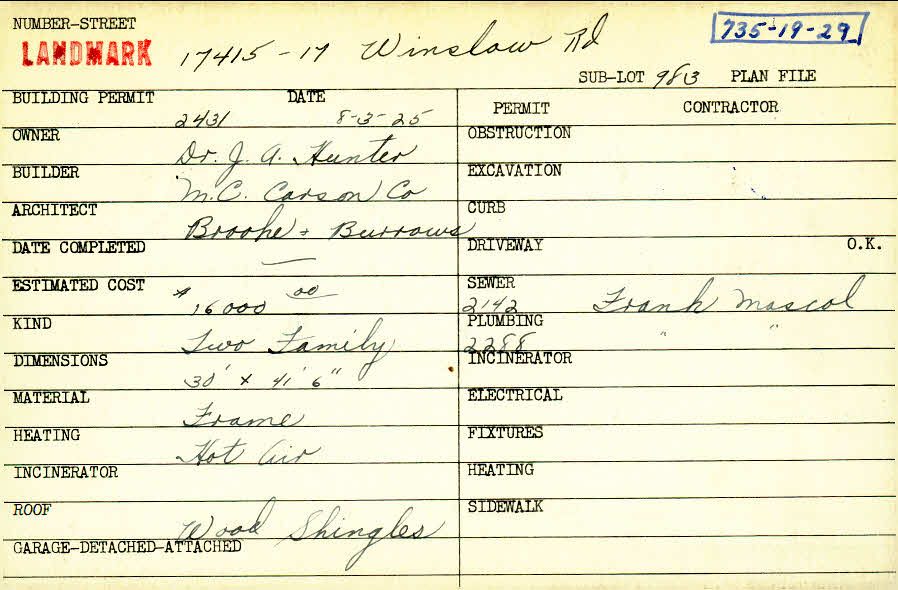 NUMBER-STREET
LANDMARK 17415-17 Winslow Rd 735-19-29
SUB-LOT 983 PLAN FILE
BUILDING PERMIT DATE PERMIT CONTRACTOR
2431 8-3-25
OWNER OBSTRUCTION
Dr. J. A. Hunter
BUILDER EXCAVATION
M.C. Carson Co
ARCHITECT CURB
Brooke + Burrows
DATE COMPLETED DRIVEWAY O.K.
—
ESTIMATED COST SEWER
$16000 00 2142 Frank Mascol
KIND PLUMBING
Two Family 2288 " "
DIMENSIONS INCINERATOR
30' x 41' 6"
MATERIAL ELECTRICAL
Frame
HEATING FIXTURES
Hot Air
INCINERATOR HEATING
ROOF SIDEWALK
Wood Shingles
GARAGE-DETACHED-ATTACHED